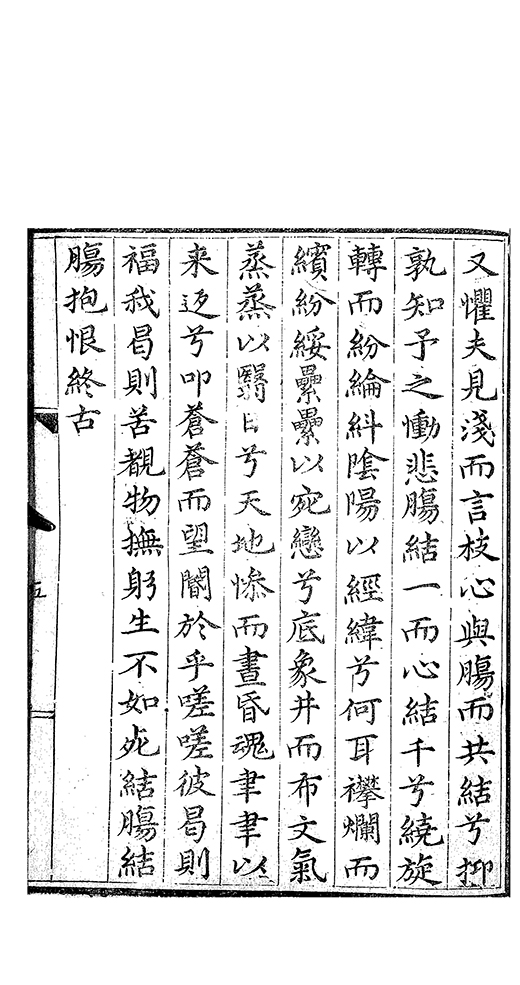 又懼夫見淺而言枝心與膓而共結兮抑
孰知予之慟悲膓結一而心結千兮繞旋
轉而紛綸糾隂陽以經緯兮何耳襻爛而
繽紛綏纍纍以宛戀兮底象井而布文氣
蒸蒸以翳日兮天地惨而晝昏魂聿聿以
来返兮叩蒼蒼而望閽於乎嗟嗟彼曷則
福我曷則苦覩物撫躬生不如死結膓結
膓抱恨終古
五